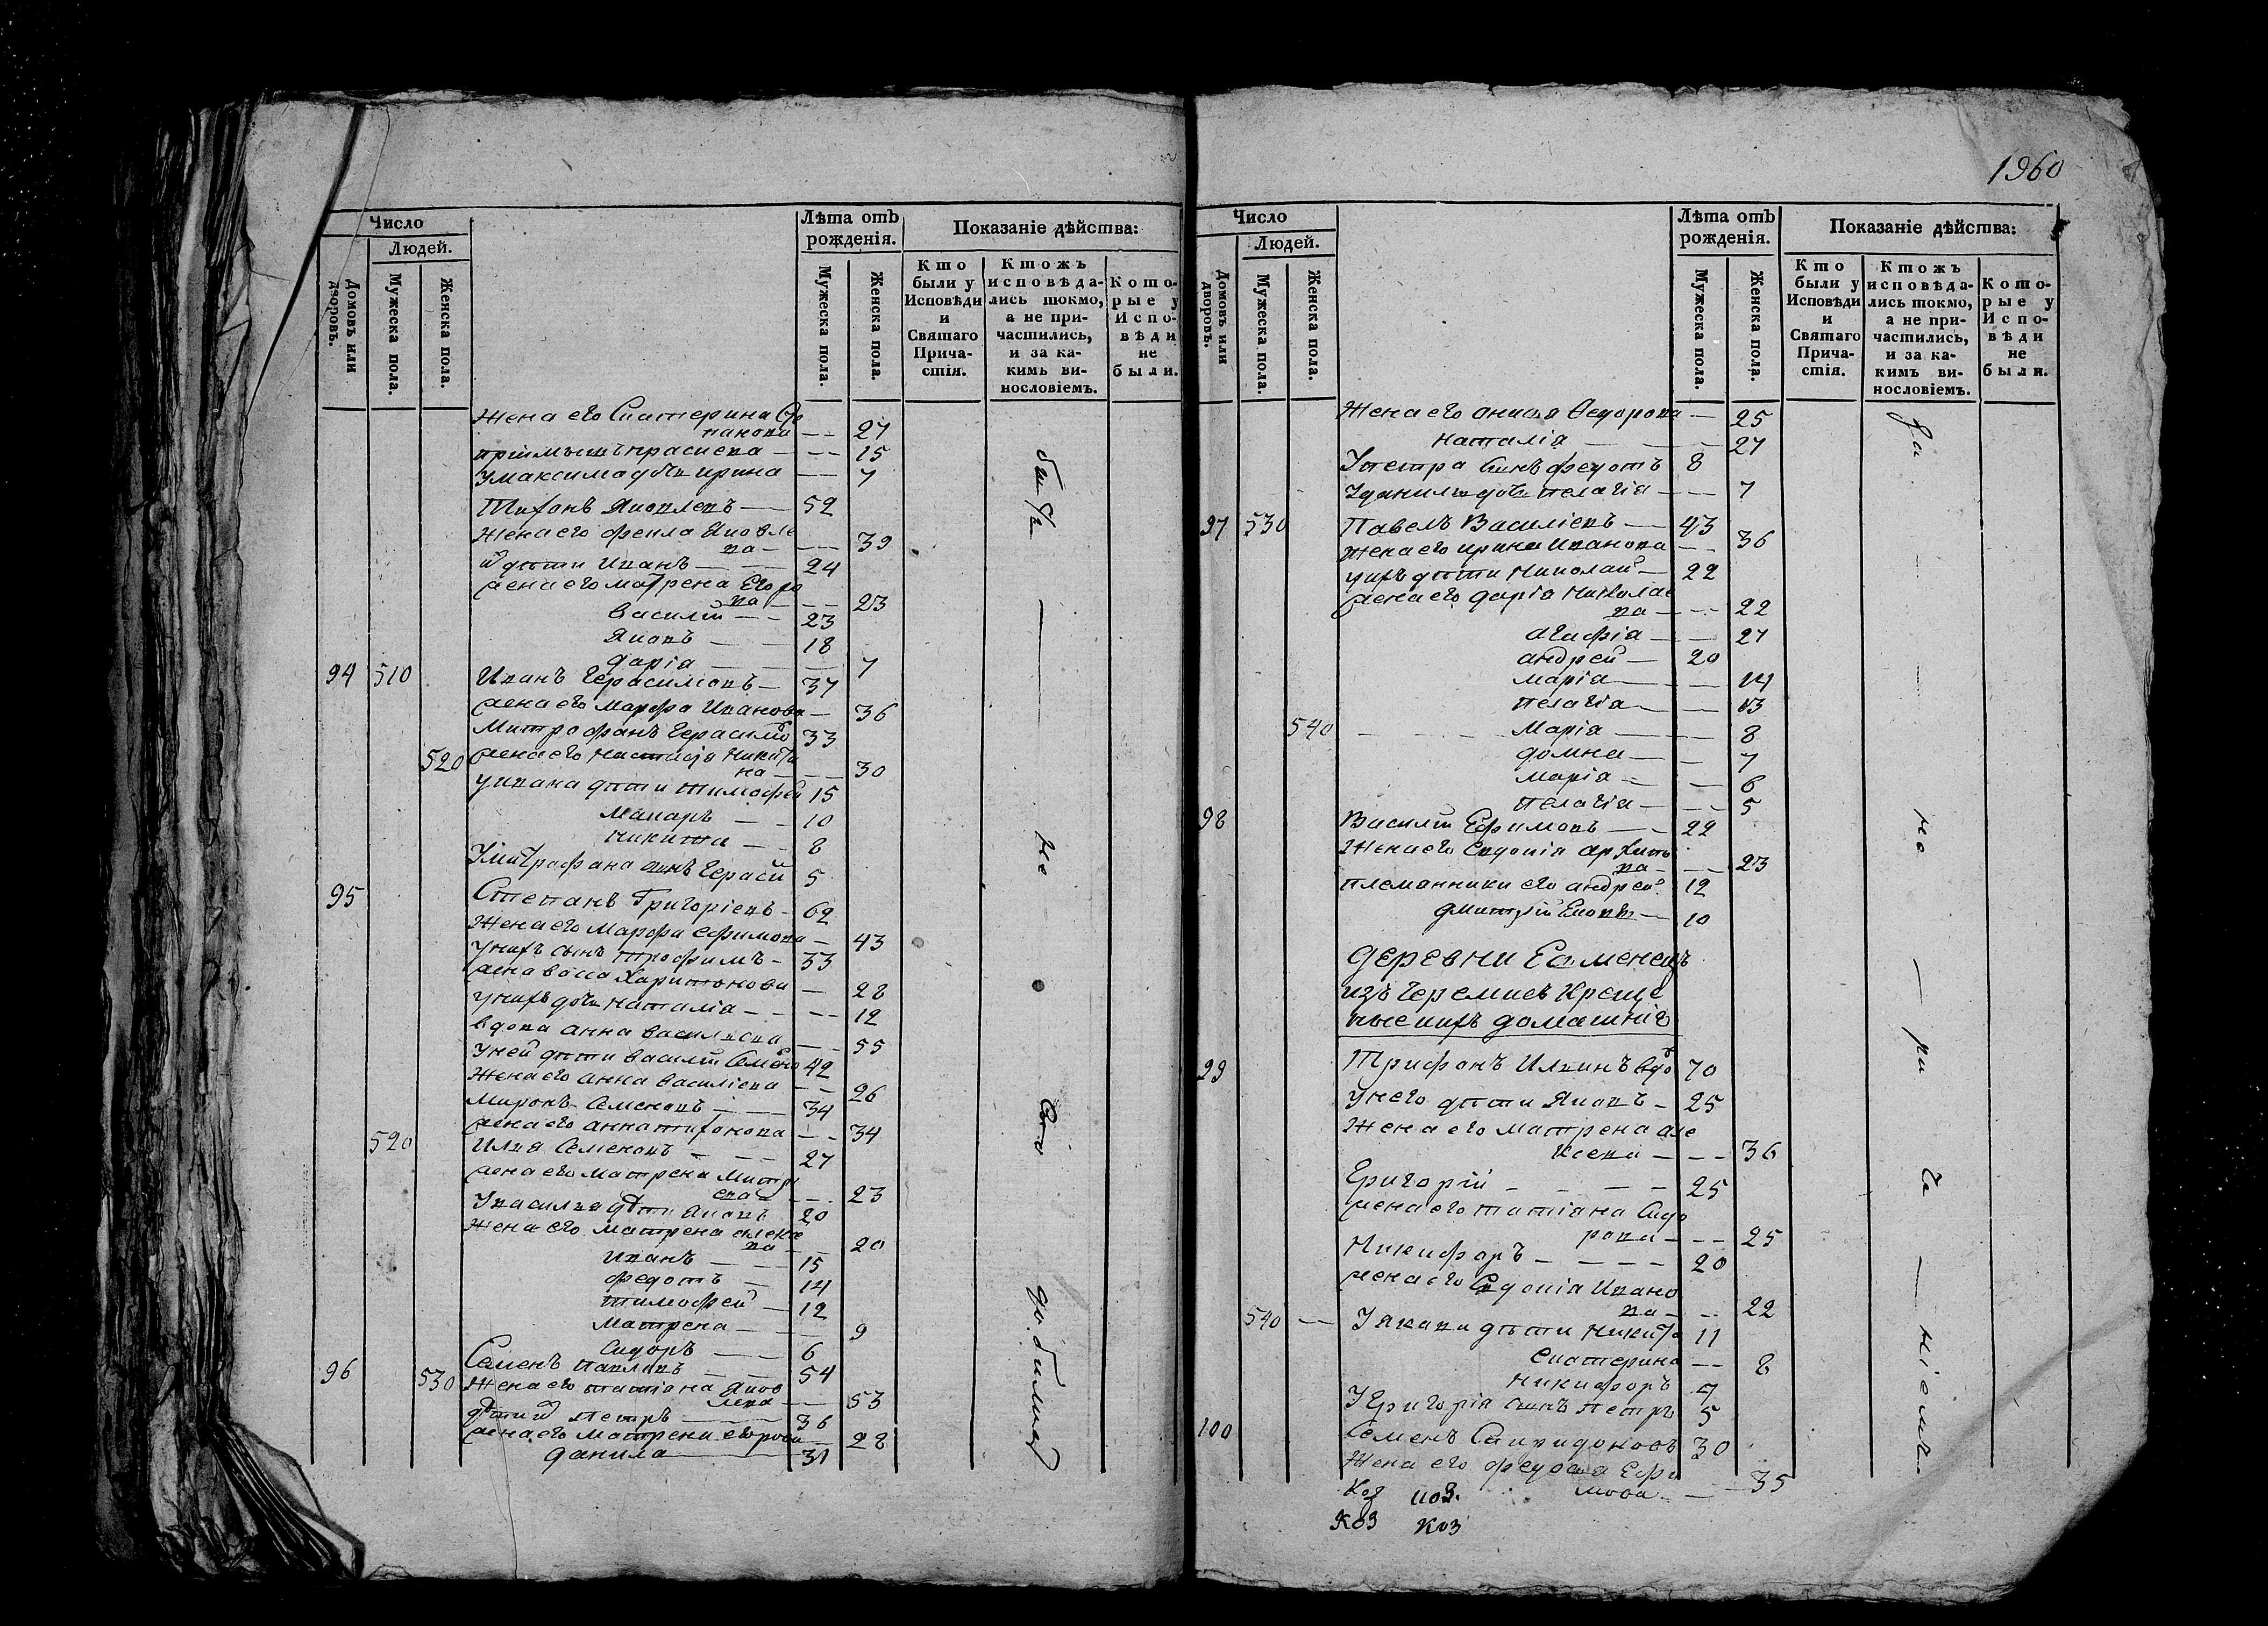 Число
Людей.
Домовъ или дворовъ.
Мужеска пола.
Женска пола.
Лѣта отъ рожденія.
Мужеска пола.
Женска пола.
Показаніе дѣйства:
Кто были у Исповѣди и Святаго Причастія.
Ктожъ исповѣдались токмо, а не причастились, и за какимъ винословіемъ.
Которые у Исповѣди не были.
жена его Екатерина
27
15
у максима дочь ирина — 7
Тихонъ Яковлевъ — 52
жена его фекла Яковле
ва — 39
дѣти Иванъ — 24
жена его матрена Егоро
ва — 23
Василій — 23
Яковъ — 18
дарія — 7
94 510 Иванъ Герасимовъ — 37
жена его марфа Иванова — 36
Митрофанъ Герасимо 33
520 жена его настасія Никити
на — 30
у ивана дѣти тимофей 15
Макаръ — 10
никита — 8
у митрофана сынъ Гераси 5
95 Степанъ Григоріевъ — 62
жена его Марфа ефимова — 43
у нихъ сынъ трофимъ — 33
жена васса Харитонова — 28
у нихъ дочь наталіа — 12
вдова анна васильева — 55
у ней дѣти василій Семено 42
жена его анна василіева — 26
миронъ Семеновъ — 34
жена его анна тихонова — 34
520 Илья Семеновъ — 27
жена его матрена Митрі
ева — 23
у василья дѣти Яковъ 20
жена его матрена алексе
ва — 20
Иванъ — 15
федотъ — 14
тимофей — 12
матрена — 9
Сидоръ — 6
96 Семенъ Павловъ — 54
530 жена его татіана Яков
лева — 53
дѣти петръ — 36
жена его матрена егорова — 28
данила — 31
не
1960
Число
Людей.
Домовъ или дворовъ.
Мужеска пола.
Женска пола.
Лѣта отъ рожденія.
Мужеска пола.
Женска пола.
Показаніе дѣйства:
Кто были у Исповѣди и Святаго Причастія.
Ктожъ исповѣдались токмо, а не причастились, и за какимъ винословіемъ.
Которые у Исповѣди не были.
жена его Ѳедорова — 25
наталіа — 27
у петра сынъ федотъ 8
у данилы дочь пелагіа — 7
97 530 Павелъ Василіевъ — 43
жена его ирина Иванова — 36
у нихъ дѣти Николай — 22
жена его дарія николае
ва — 22
агафіа — 21
андрей — 20
маріа — 14
пелагіа — 13
540 Маріа — 8
домна — 7
маріа — 6
пелагіа — 5
98 Василій Ефимовъ — 22
жена его Евдокіа архипо
ва — 23
племянники его андрей 12
дмитрій — 10
деревни
изъ Черемисъ Креще
ные ихъ домашнія
99 Трифонъ Илинъ вдо 70
у него дѣти Яковъ — 25
жена его матрена але
ксева — 36
Григорій — 25
жена его татіана Сидо
рова — 25
Никифоръ — 20
жена его Евдокіа Ивано
ва — 22
540 у Якова дѣти никита 11
екатерина — 8
никифоръ 7
у Григоріа сынъ петръ 5
100 Семенъ Спиридоновъ 30
жена его федосья Ефи
мова — 35
Коз
Коз Коз